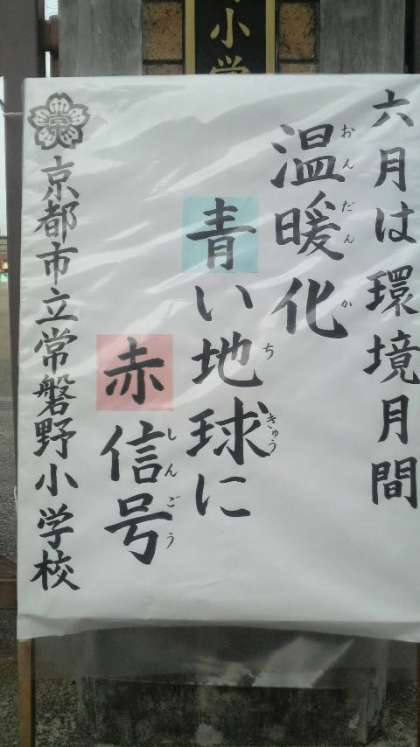 小学
六月は環境月間
温暖化
おんだんか
青い地球に
ちきゅう
赤信号
しんごう
京都市立常磐野小学校